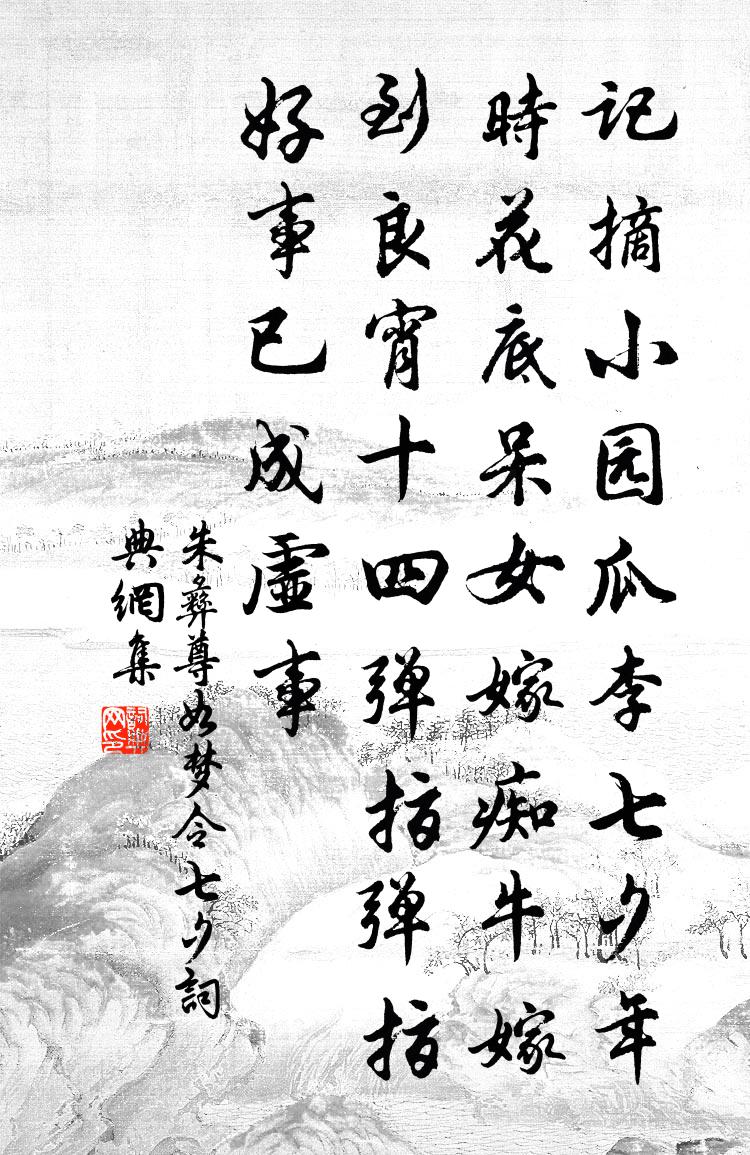 记摘小园瓜李七夕年
時花底呆女嫁痴牛嫁
到良宵十四弹指弹指
好事已成虚事
朱彝尊如梦令七夕詞
典網集